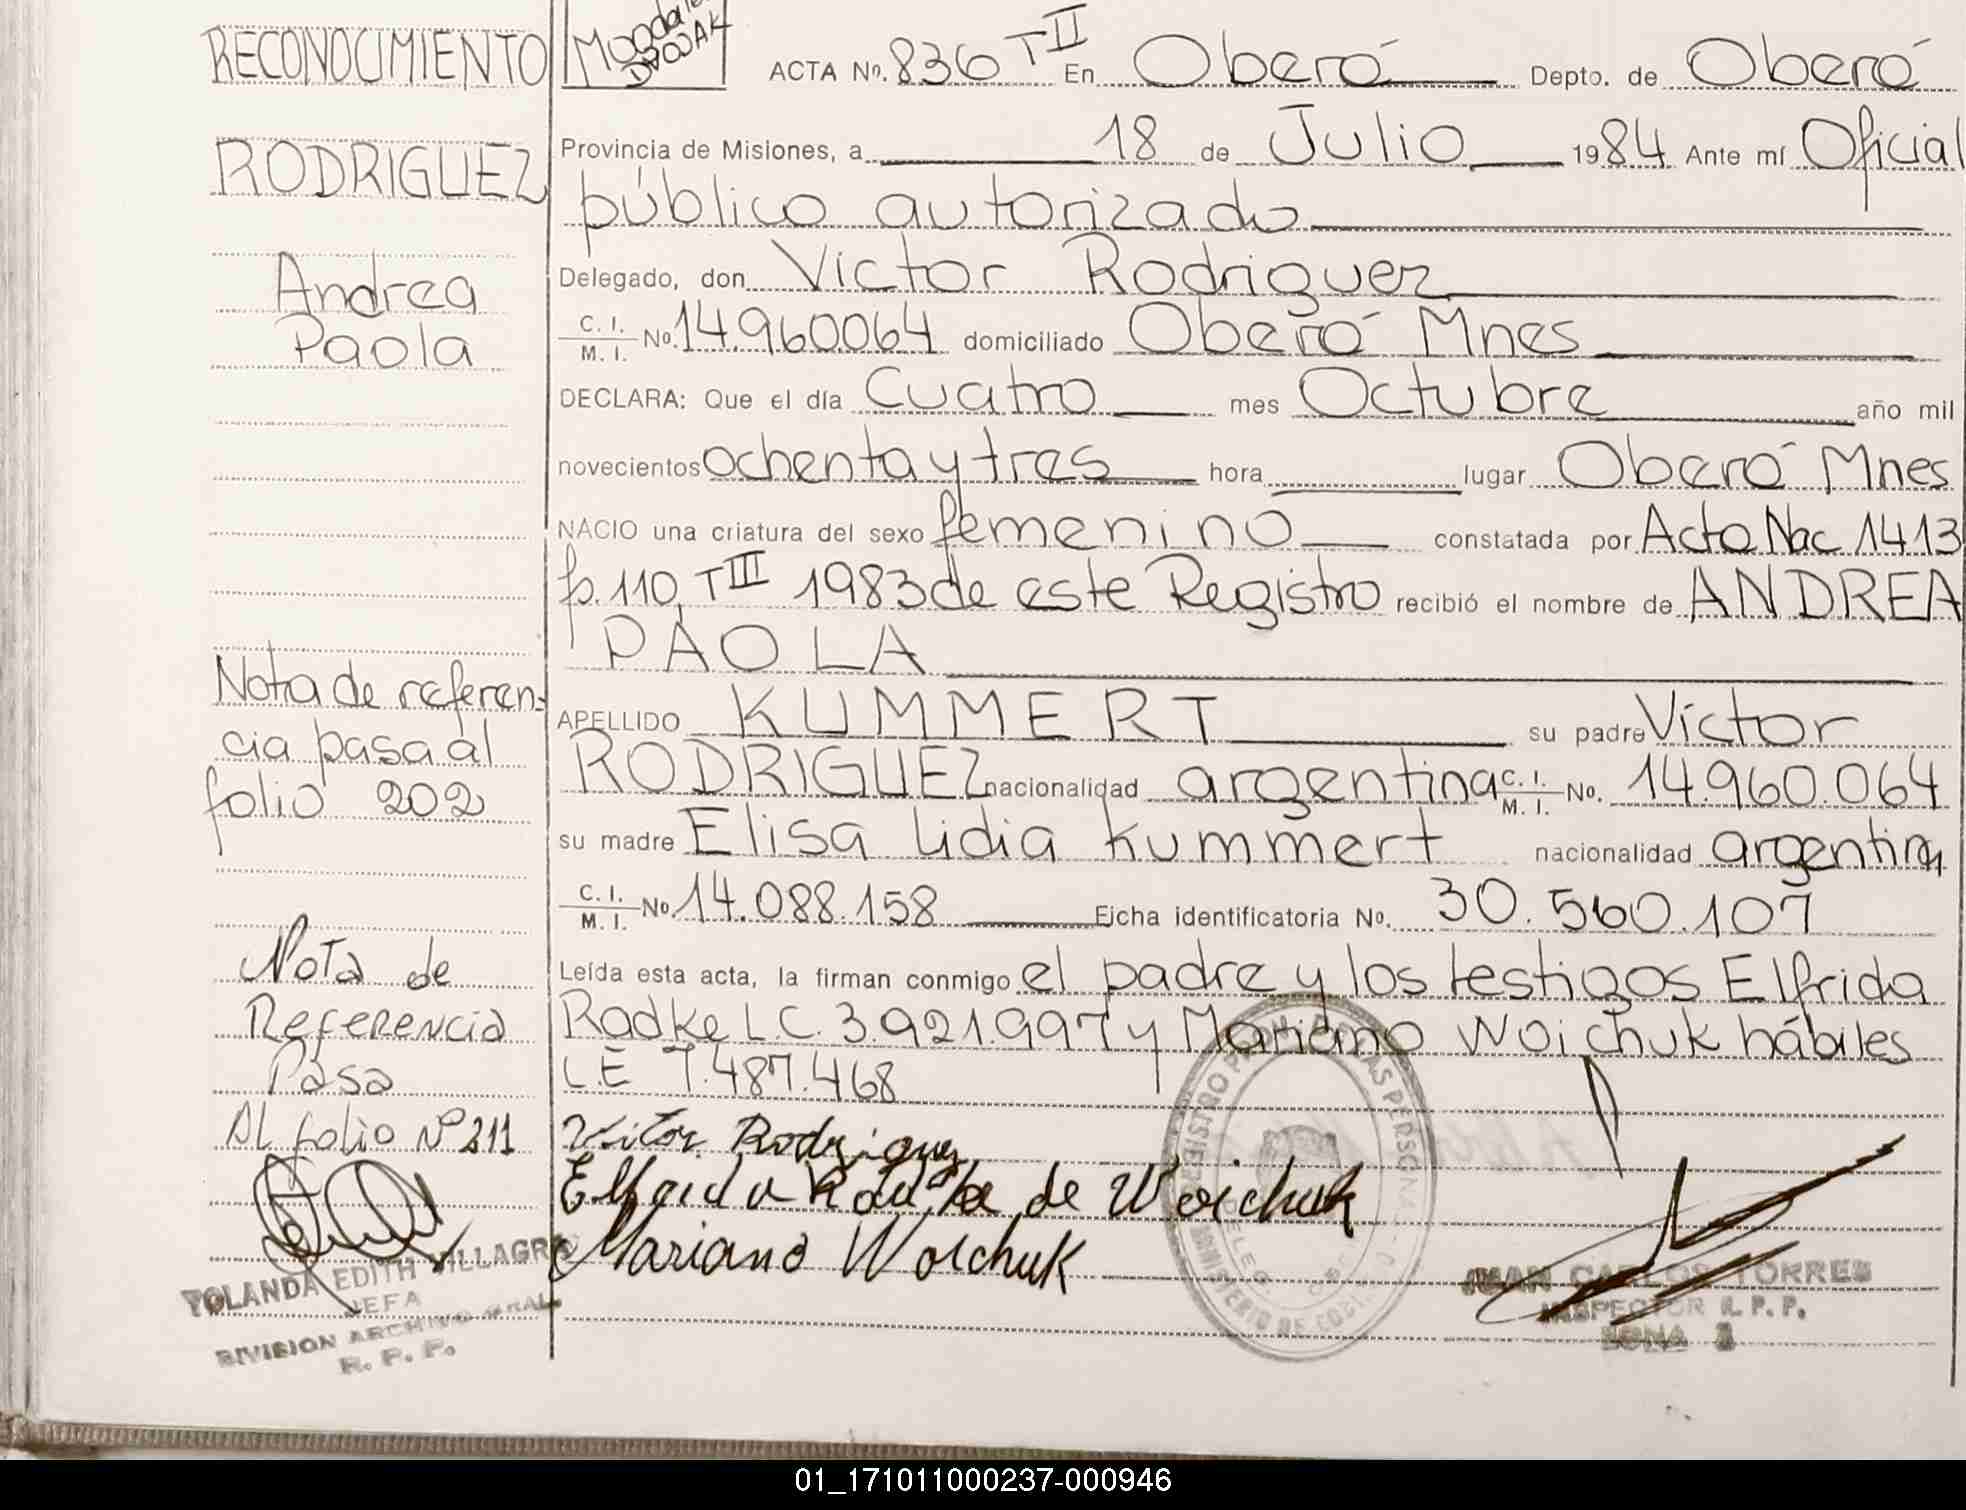 RECONOCIMIENTO
RODRIGUEZ
Andrea
Paola
Nota de referen-
cia pasa al
folio 202
Nota de
Referencia
Pasa
Al folio Nº 211
YOLANDA EDITH VILLAGRA
JEFA
DIVISION ARCHIVO GRAL.
R. P. P.
ACTA Nº. 836 T II En Oberá Depto. de Oberá
Provincia de Misiones, a 18 de Julio 1984 Ante mí Oficial
público autorizado
Delegado, don Victor Rodriguez
C. I.
M. I. Nº. 14.960.064 domiciliado Oberá Mnes
DECLARA: Que el día Cuatro mes Octubre año mil
novecientos ochenta y tres hora lugar Oberá Mnes
NACIO una criatura del sexo femenino constatada por Acta Nac 1413
fº. 110, T III 1983 de este Registro recibió el nombre de ANDREA
PAOLA
APELLIDO KUMMERT su padre Víctor
RODRIGUEZ nacionalidad argentina C. I. M. I. Nº. 14.960.064
su madre Elisa Lidia Kummert nacionalidad argentina
C. I.
M. I. Nº. 14.088.158 Ficha identificatoria Nº. 30.560.107
Leída esta acta, la firman conmigo el padre y los testigos Elfrida
Radke L.C. 3.921.997 y Mariano Woichuk hábiles
L.E 7.487.468
Victor Rodriguez
Elfrida Radtke de Woichuk
Mariano Woichuk
JUAN CARLOS TORRES
INSPECTOR R. P. P.
ZONA 3
01_171011000237-000946